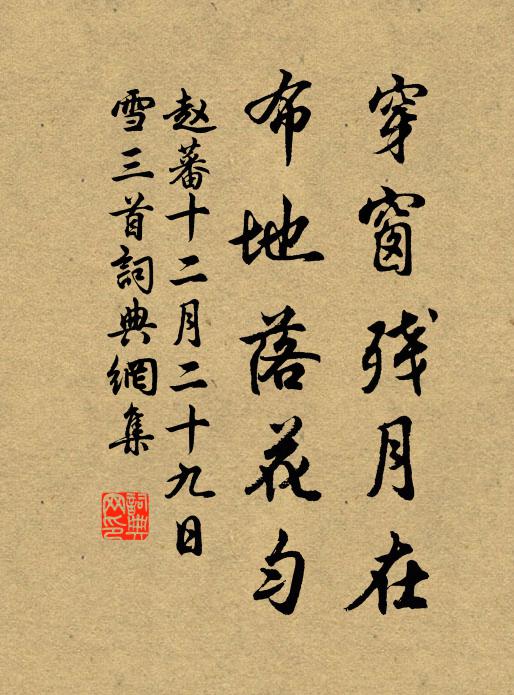 穿窗残月在
布地落花匀
赵蕃十二月二十九日
雪三首詞典網集
詞典
网印